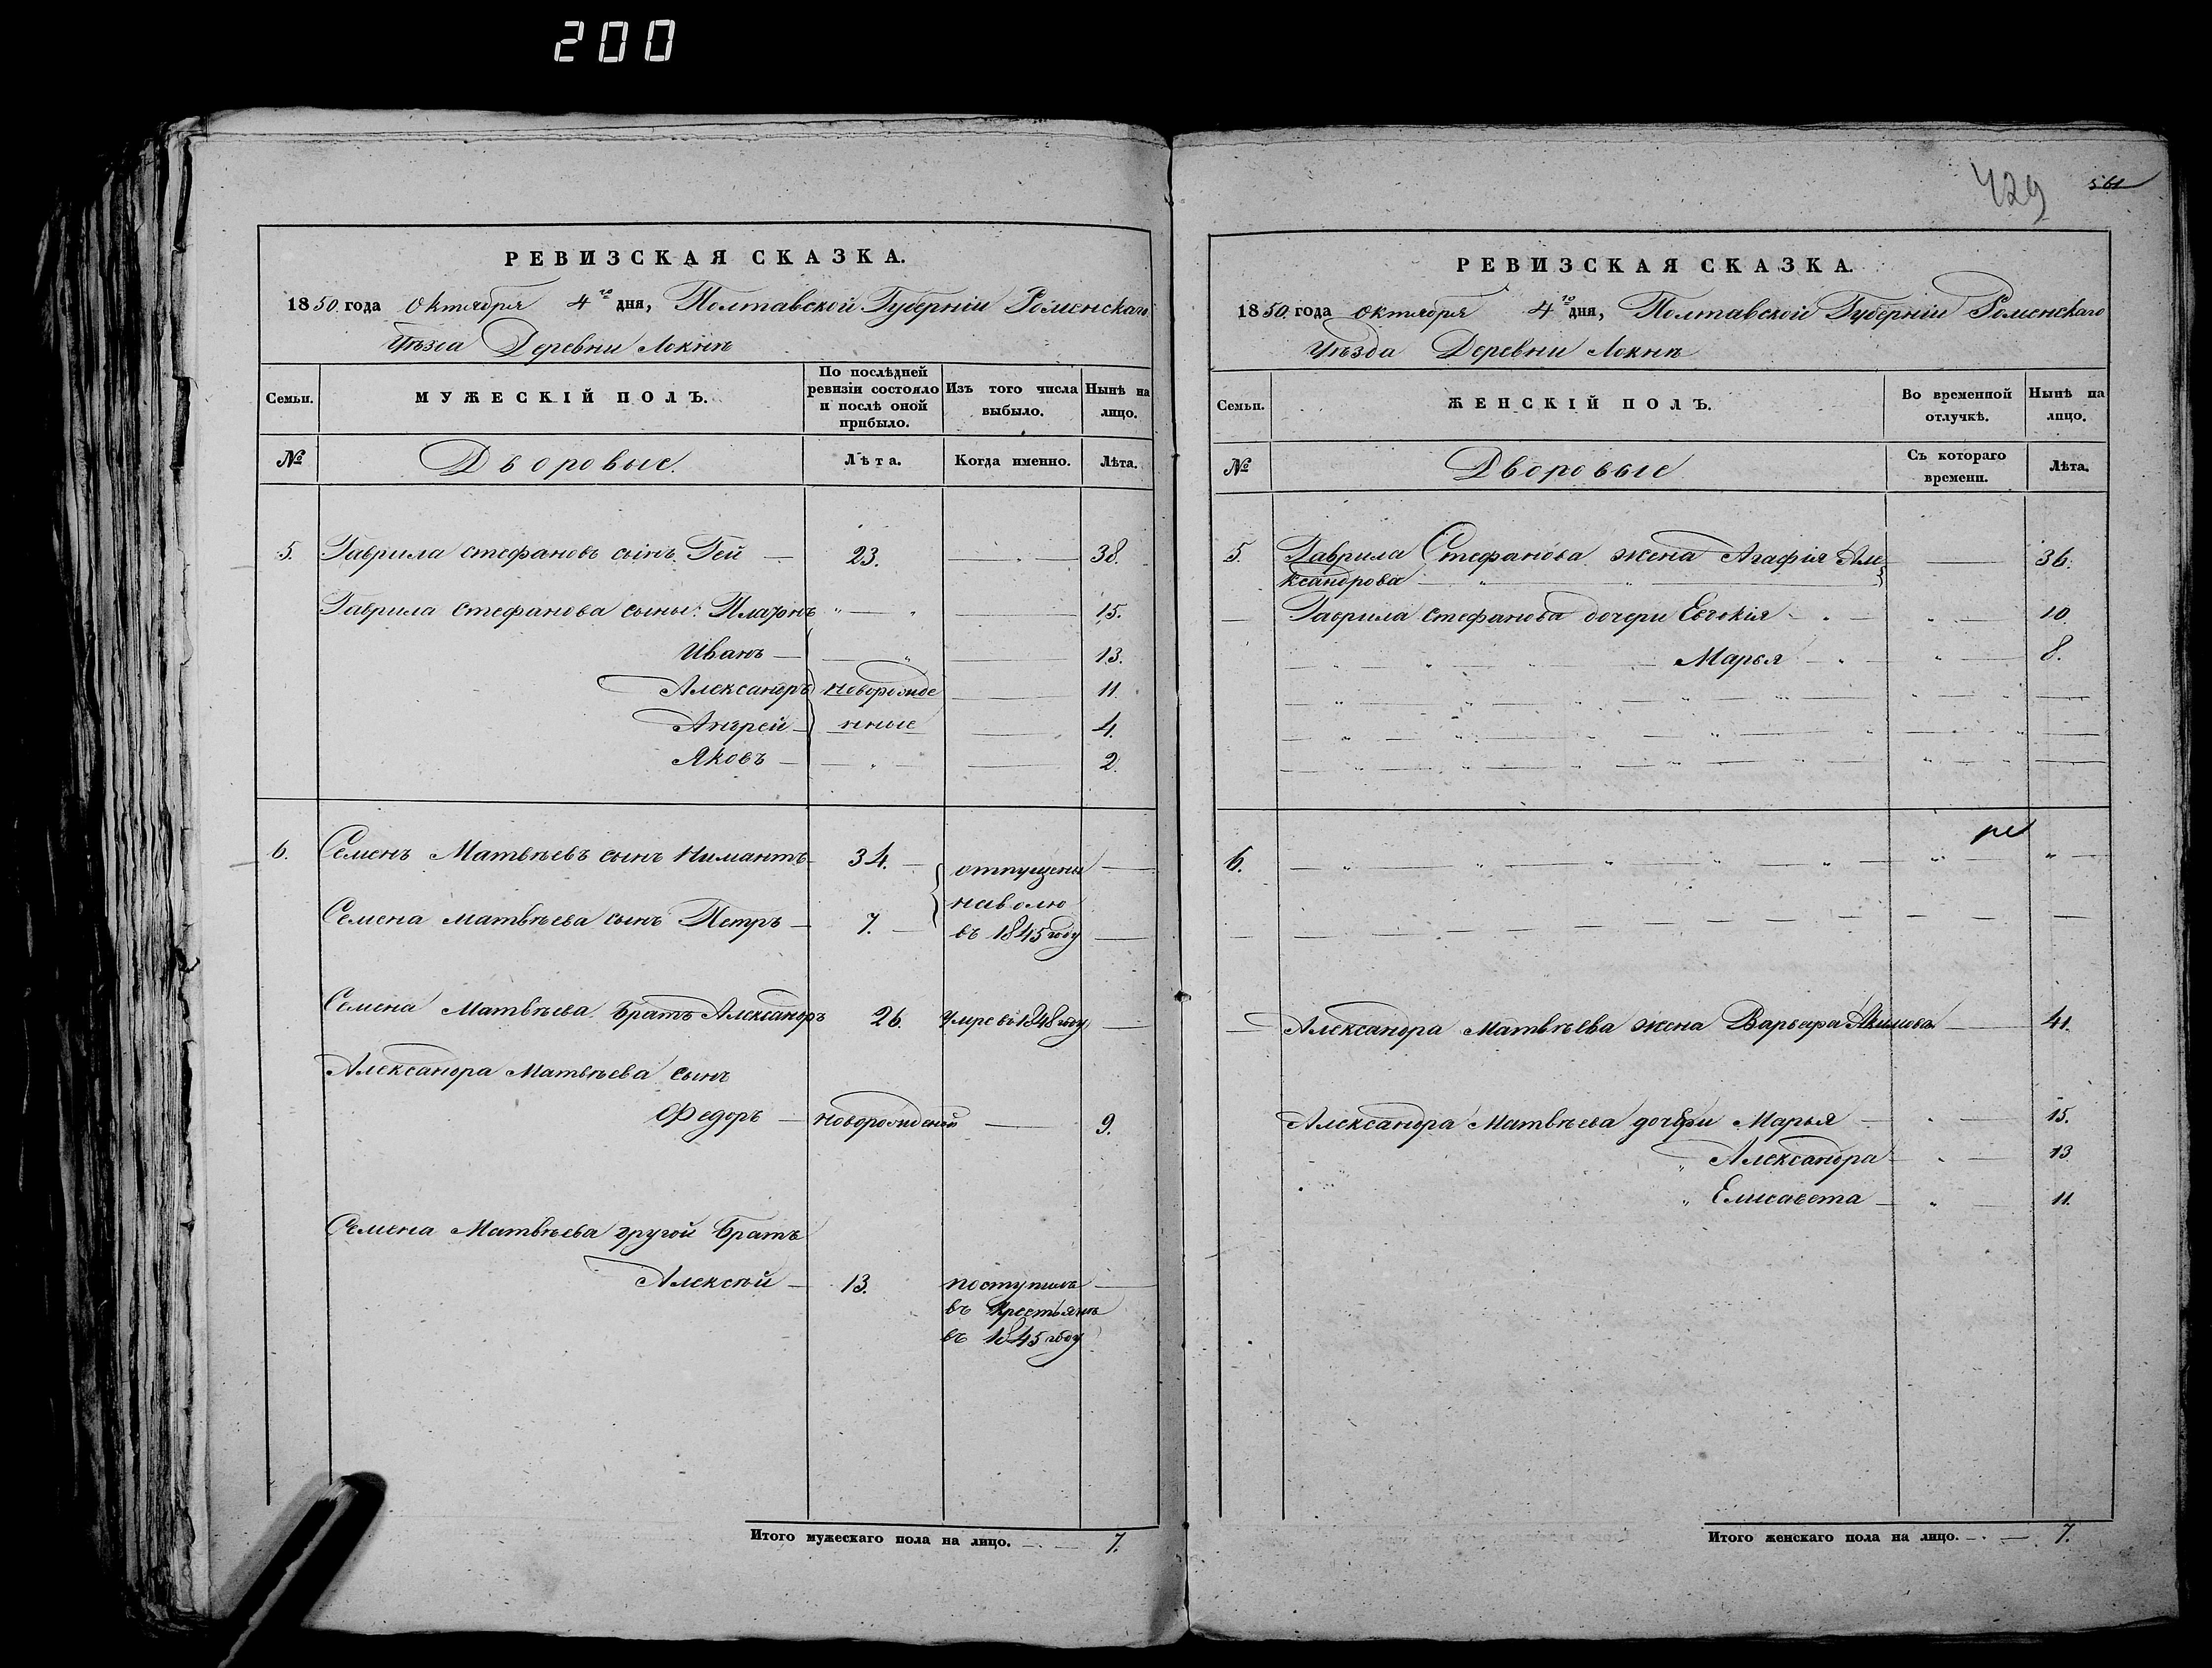 200
429
561
РЕВИЗСКАЯ СКАЗКА.
1850. года Октября 4го дня, Полтавской Губерніи Роменскаго
Уѣзда Деревни Локнѣ
Семьи.
МУЖЕСКІЙ ПОЛЪ.
По послѣдней
ревизіи состояло
и послѣ оной
прибыло.
Изъ того числа
выбыло.
Нынѣ на
лицо.
№
Дворовые.
Лѣта.
Когда именно.
Лѣта.
5. Гаврила Стефановъ сынъ Гей — 23. — 38.
Гаврила Стефанова сыны: — " — " — 15.
Иванъ — — " — 13.
Александръ новорожде — 11.
Андрей — нные — 4.
Яковъ — — " — 2.
6. Семенъ Матвѣевъ сынъ 34. — отпущены —
наволю
Семена Матвѣева сынъ Петръ — 7. — въ 1845 году —
Семена Матвѣева братъ Александръ 26. Умре въ 1848 году —
Александра Матвѣева сынъ
Федоръ — новорожденой — 9.
Семена Матвѣева другой братъ
Алексѣй — 13. поступилъ —
въ крестьянѣ
въ 1845 году
Итого мужескаго пола на лицо. — 7.
РЕВИЗСКАЯ СКАЗКА.
1850. года Октября 4го дня, Полтавской Губерніи Роменскаго
Уѣзда Деревни Локнѣ
Семьи.
ЖЕНСКІЙ ПОЛЪ.
Во временной
отлучкѣ.
Нынѣ на
лицо.
№
Дворовые
Съ котораго
времени.
Лѣта.
5. Гаврила Стефанова жена Агафія Але — 36.
ксандрова
— Гаврила Стефанова дочери Евдокія — " — 10.
Марья — " — 8.
6.
— Александра Матвѣева жена Варвара Акимова — 41.
Александра Матвѣева дочери Марья — " — 15.
" Александра — " — 13
" Елисавета — " — 11.
Итого женскаго пола на лицо. — 7.